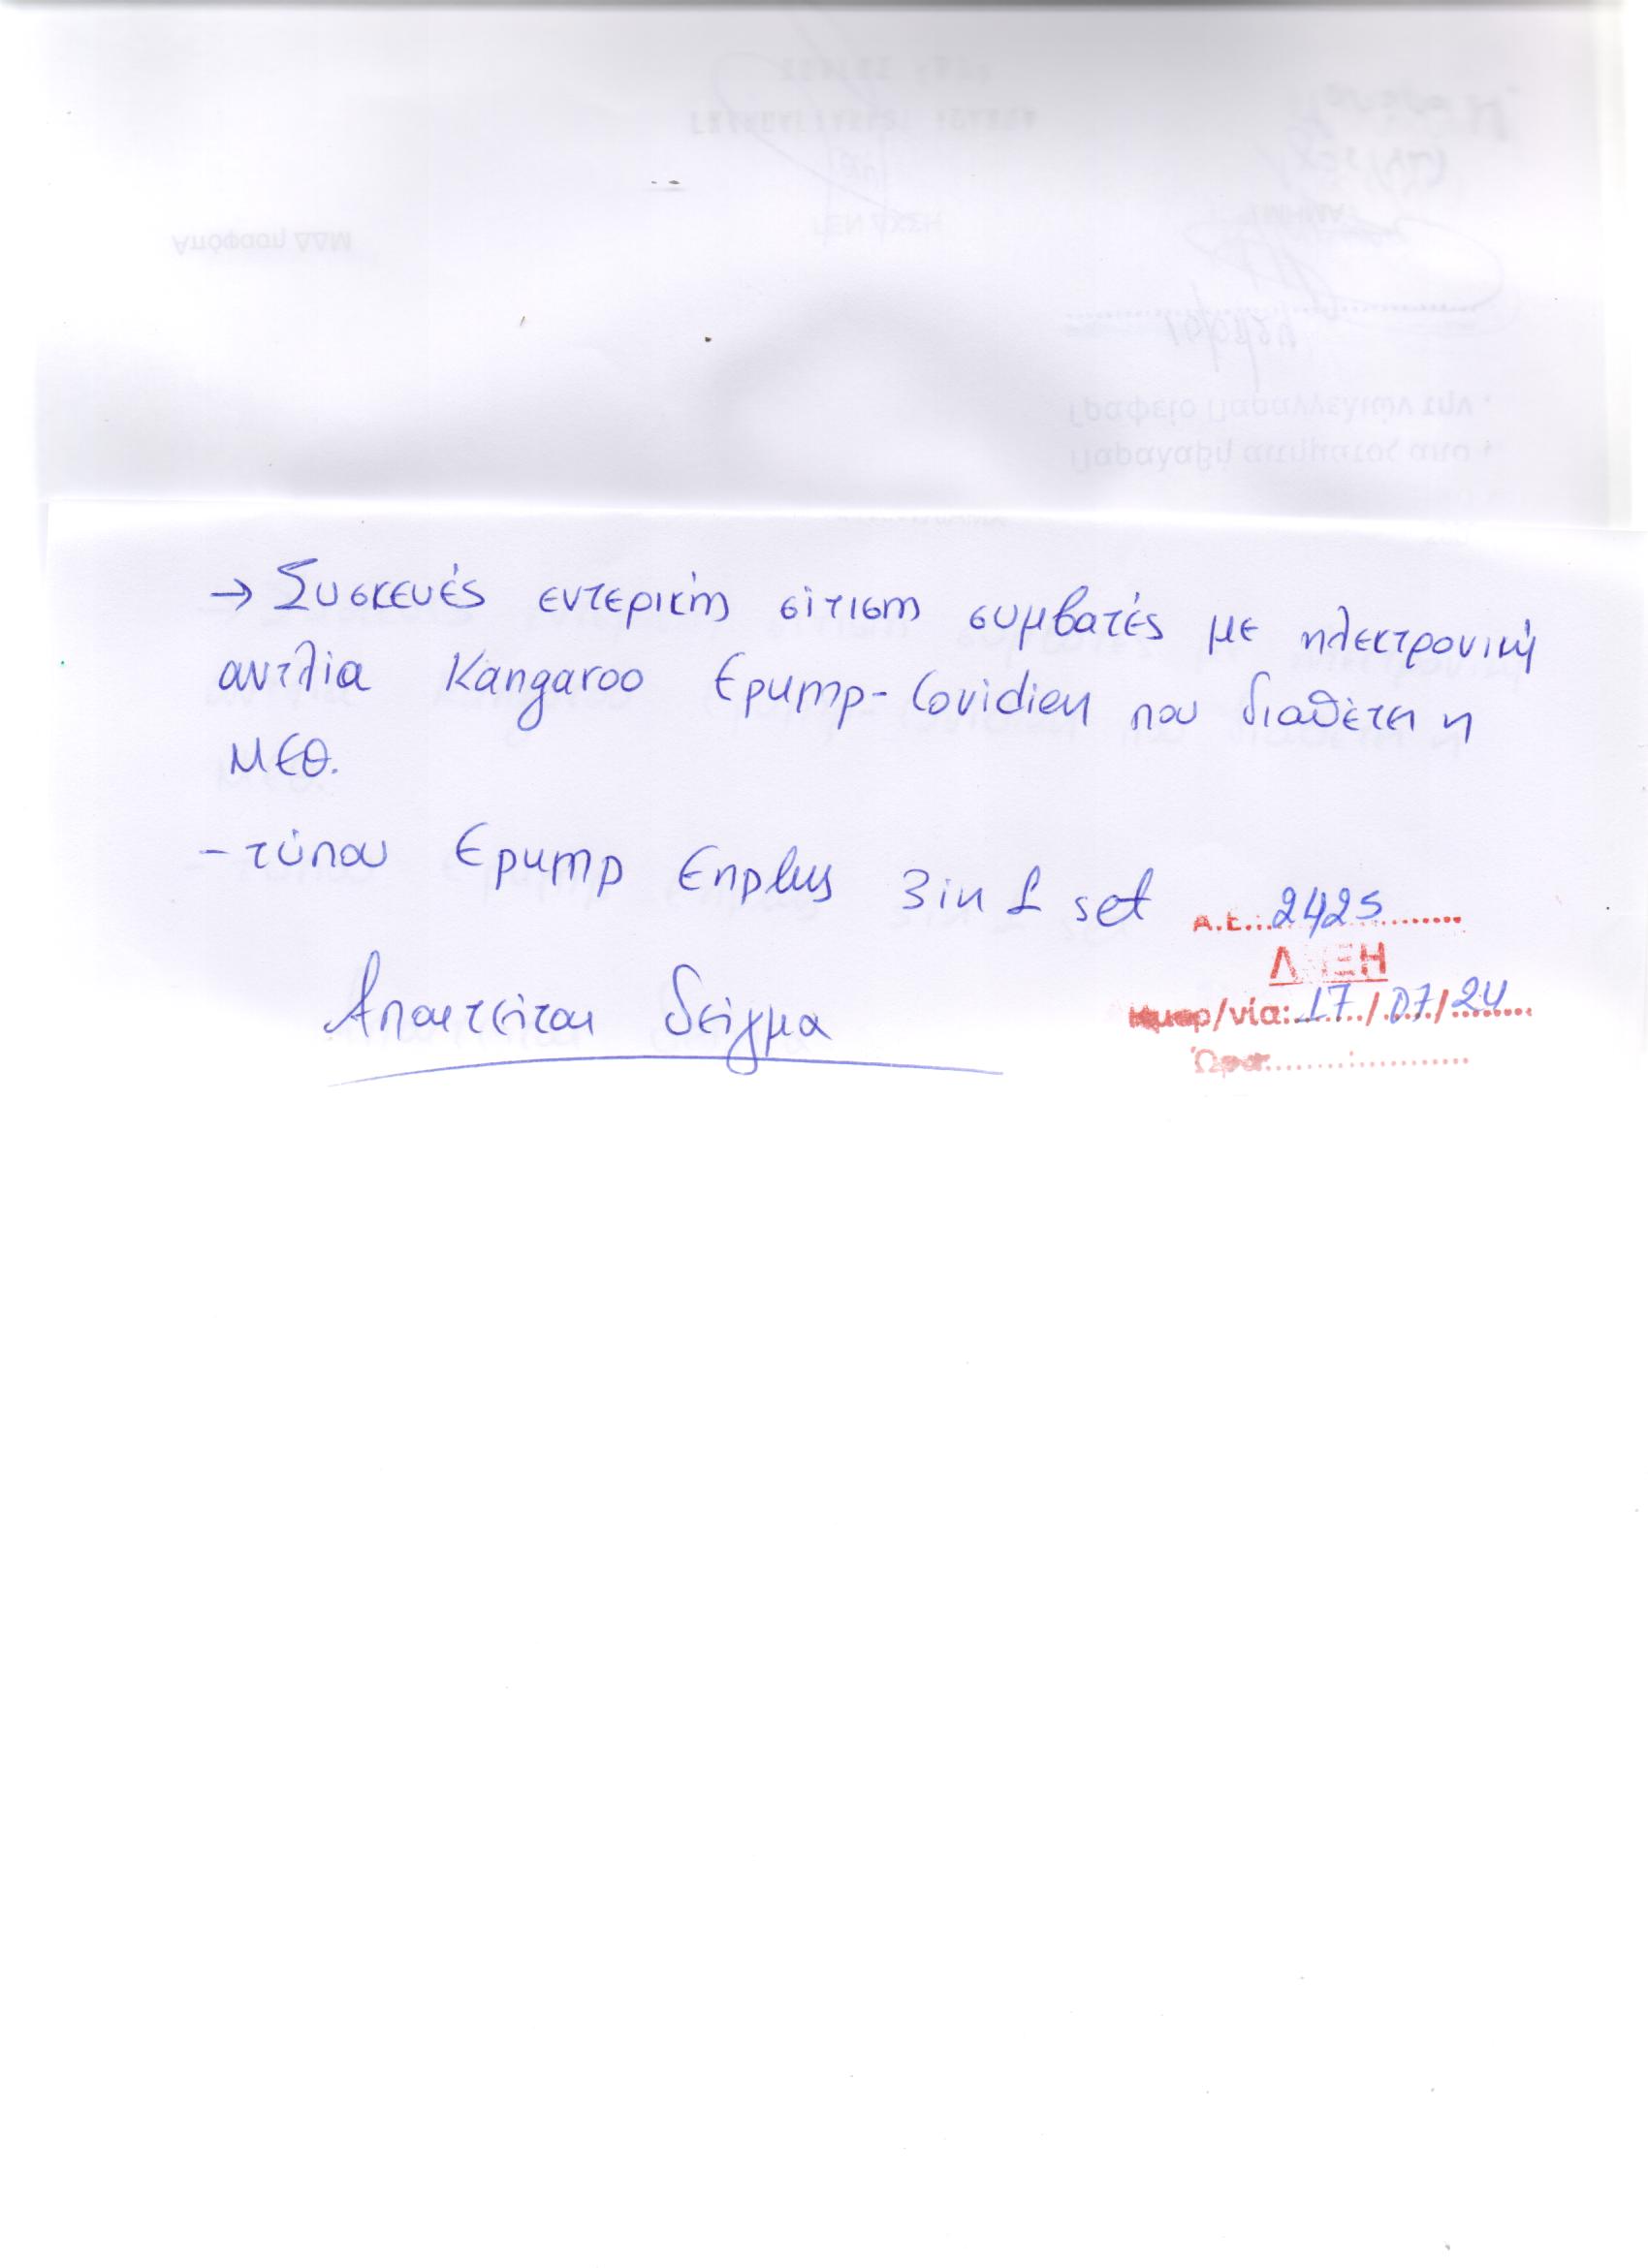 → Συσκευές εντερικής σίτισης συμβατές με ηλεκτρονική
αντλία Kangaroo Epump-Covidien που διαθέτει η
ΜΕΘ.
- τύπου Epump Enplus 3 in 1 set
Απαιτείται δείγμα
Α.Ε.: 2425
ΛΗΞΗ
Ημερ/νία: 17/07/24
Ώρα